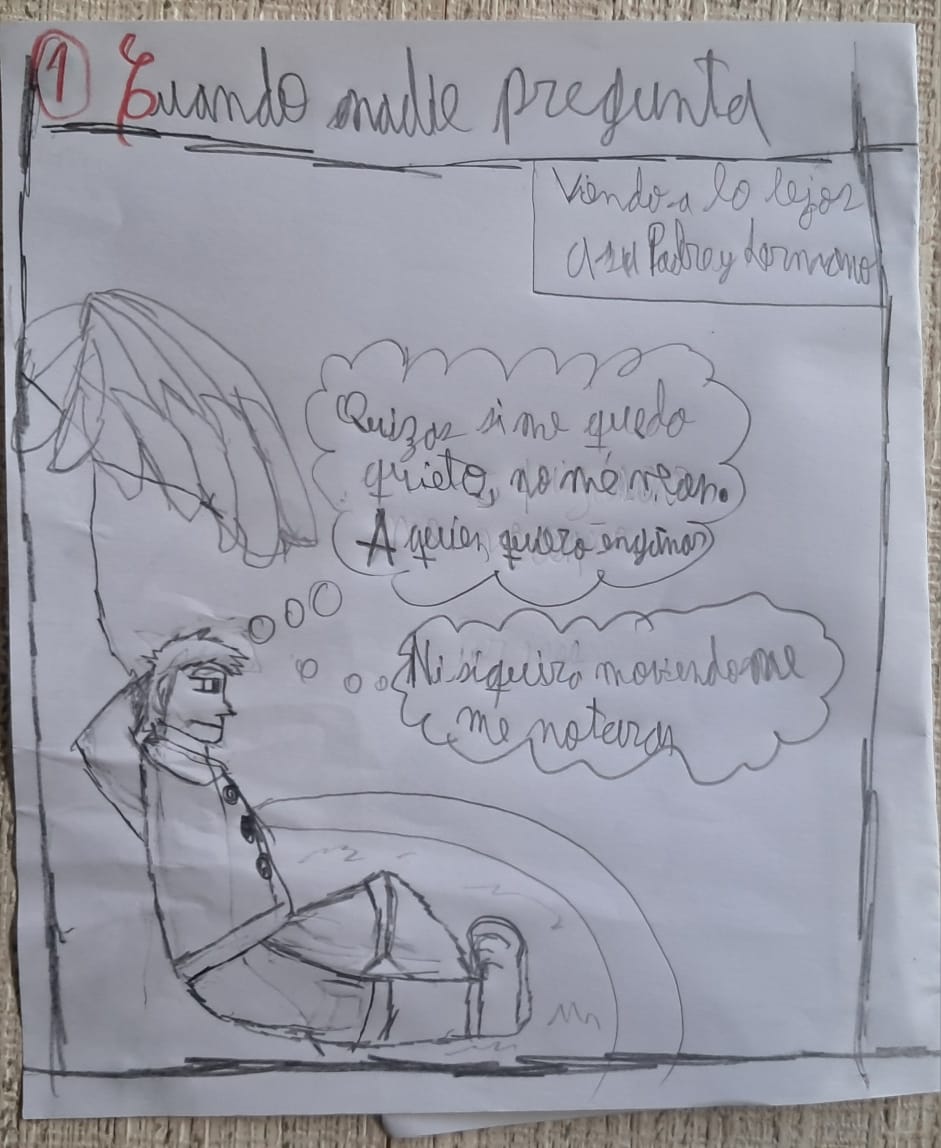 1 Cuando nadie pregunta
Viendo a lo lejos
a su Padre y hermano
Quizas si me quedo
quieto, no me vean.
A quien quiero engañar
Ni siquiera moviendome
me notaran